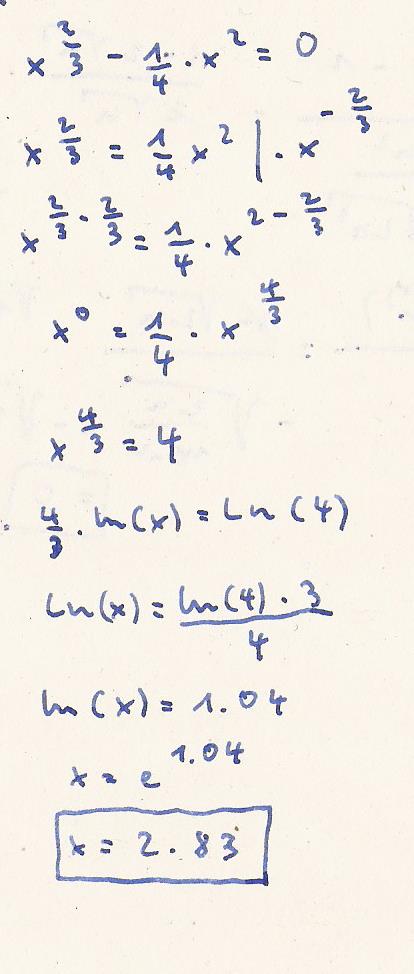 x^(2/3) - 1/4 · x^2 = 0
x^(2/3) = 1/4 x^2 | · x^(-2/3)
x^(2/3 · 2/3) = 1/4 · x^(2 - 2/3)
x^0 = 1/4 · x^(4/3)
x^(4/3) = 4
4/3 · ln(x) = Ln(4)
Ln(x) = (ln(4) · 3)/4
ln(x) = 1.04
x = e^1.04
x = 2.83